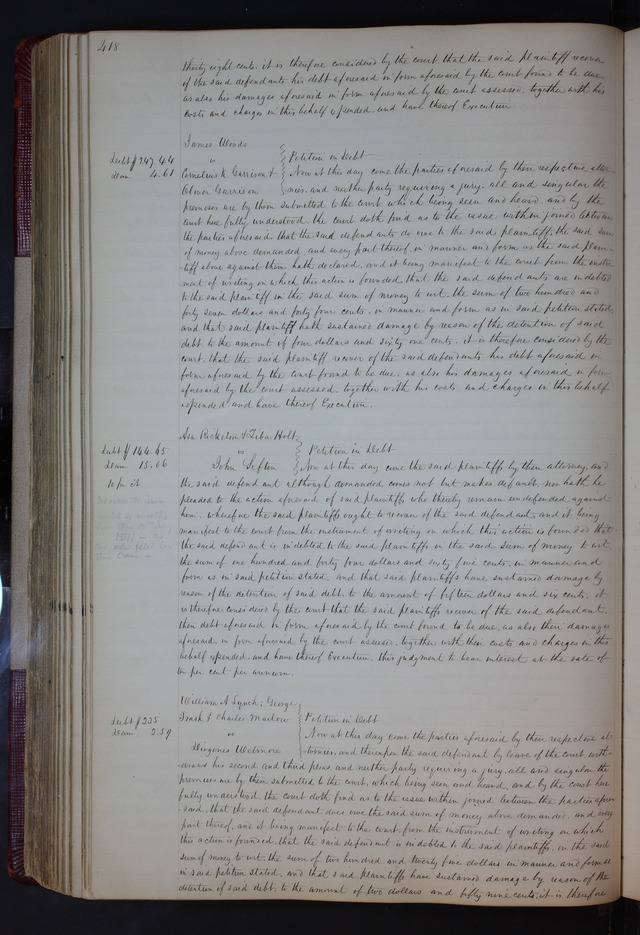 418
thirty eight cents. it is therefore considered by the court that the said plaintiff recover
of the said defendants his debt aforesaid in form aforesaid by the court found to be due
as also his damages aforesaid in form aforesaid by the court assessed, together with his
costs and charges in this behalf expended, and have thereof Execution
James Woods
Debt $247.44 " Petition in Debt
Dam 4.61 Cornelius K Garrison & Now at this day come the parties aforesaid by their respective attor
Oliver Garrison neis, and neither party requiring a jury, all and singular the
premises are by them submitted to the court which being seen and heard, and by the
court here fully understood the court doth find as to the issue within joined between
the parties aforesaid that the said defendants do owe to the said plaintiff, the said sum
of money above demanded, and every part thereof, in manner and form as the said plain-
-tiff above against them hath declared, and it being manifest to the court from the instru
ment of writing on which this action is founded, that the said defendants are indebted
to the said plaintiff in the said sum of money to wit, the sum of two hundred and
forty seven dollars and forty four cents, in manner and form as in said petition stated,
and that said plaintiff hath sustained damage by reason of the detention of said
debt, to the amount of four dollars and sixty one cents. it is therefore considered by the
court, that the said plaintiff recover of the said defendants his debt aforesaid in
form aforesaid by the court found to be due, as also his damages aforesaid in form
aforesaid by the court assessed, together with his costs and charges in this behalf
expended, and have thereof Execution.
Asa Rickeson & Ziba Holt
Debt $144.65 " Petition in Debt
Dam 15.06 John Sifton Now at this day come the said plaintiffs by their attorney, and
10 pr ct the said defendant although demanded comes not but makes default, nor hath he
pleaded to the action aforesaid of said plaintiffs who thereby remain undefended against
him. wherefore the said plaintiffs ought to recover of the said defendant, and it being
manifest to the court from the instrument of writing on which this action is founded that
the said defendant is indebted to the said plaintiffs in the said sum of money to wit,
the sum of one hundred and forty four dollars and sixty five cents, in manner and
form as in said petition stated, and that said plaintiffs have sustained damage by
reason of the detention of said debt, to the amount of fifteen dollars and six cents. it
is therefore considered by the court that the said plaintiffs recover of the said defendant
their debt aforesaid in form aforesaid by the court found to be due, as also their damages
aforesaid, in form aforesaid by the court assessed, together with their costs and charges in this
behalf expended, and have thereof Execution. this judgment to bear interest at the rate of
ten per cent per annum.
William A Lynch, George
Debt $225 Trask & Charles Marlow Petition in Debt
Dam 2.59 " Now at this day come the parties aforesaid by their respective at
Diogenes Wetmore tornies, and thereupon the said defendant by leave of the court with
draws his second and third pleas, and neither party requiring a jury, all and singular the
premises are by them submitted to the court, which being seen and heard, and by the court here
fully understood, the court doth find as to the issue within joined between the parties afore
-said, that the said defendant does owe the said sum of money above demanded, and every
part thereof, and it being manifest to the court, from the instrument of writing on which
this action is founded, that the said defendant is indebted to the said plaintiffs, in the said
sum of money to wit, the sum of two hundred and twenty five dollars in manner and form as
in said petition stated, and that said plaintiffs have sustained damage by reason of the
detention of said debt, to the amount of two dollars and fifty nine cents. it is therefore